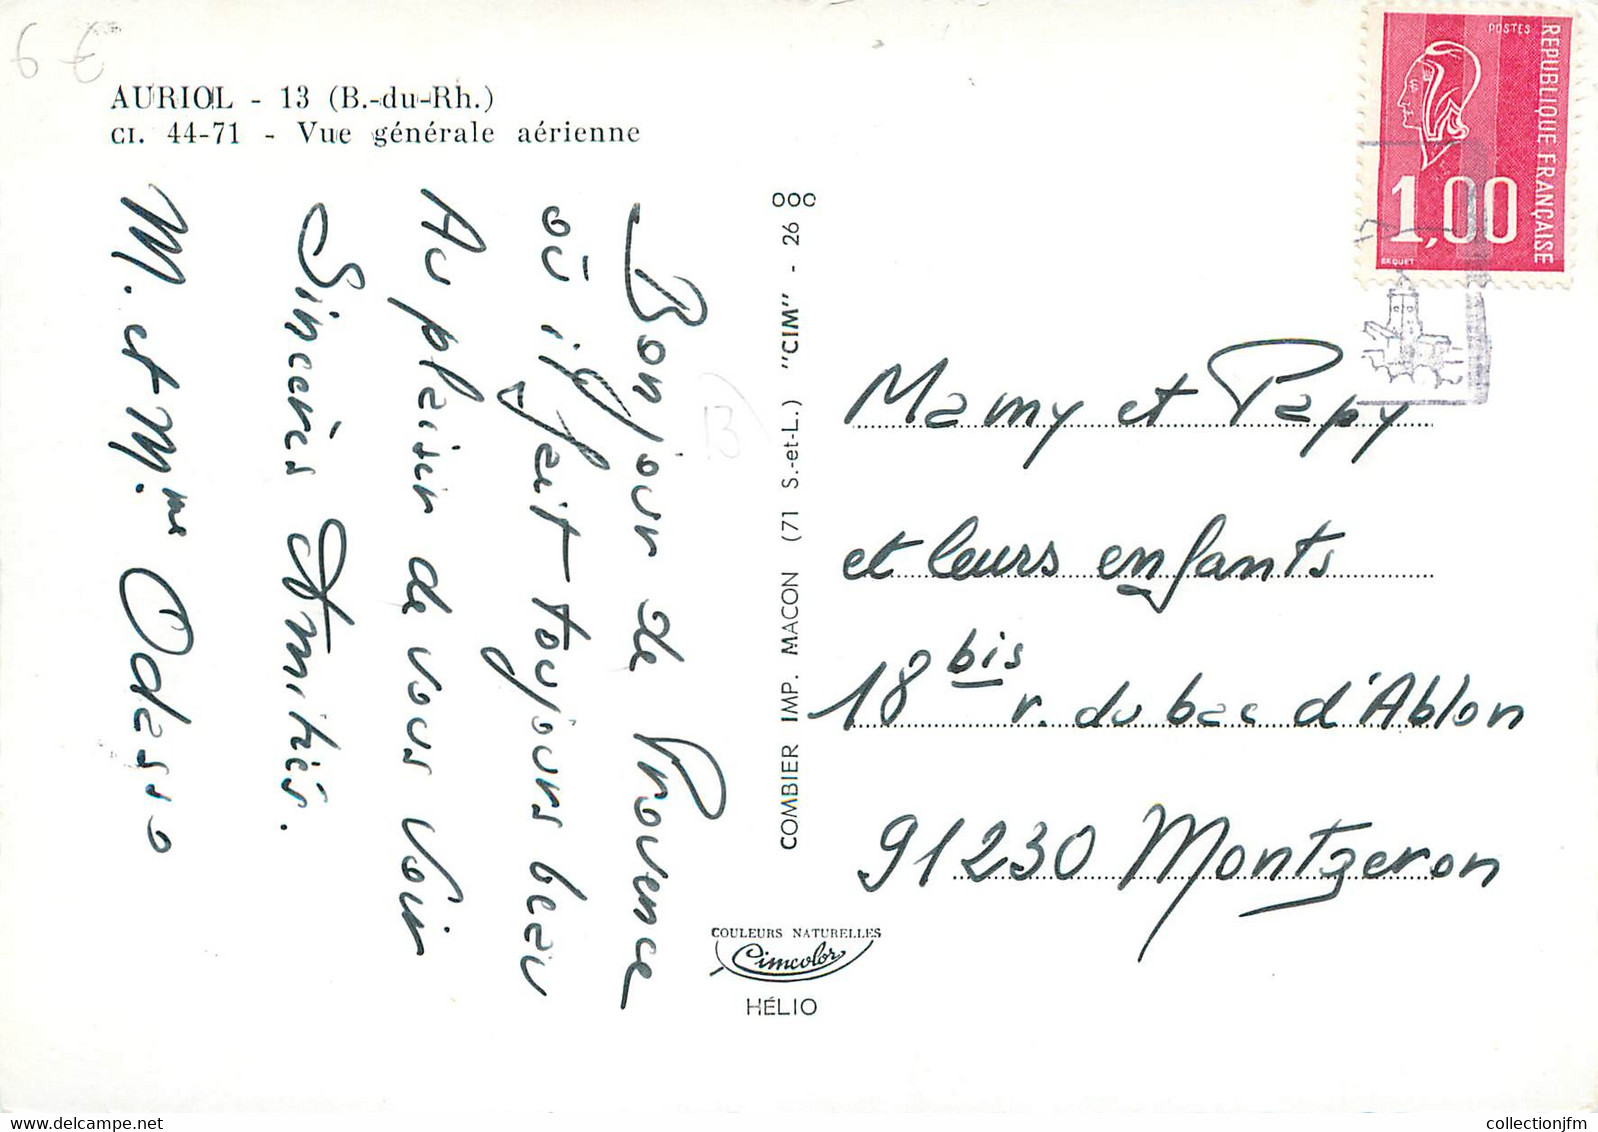 6 €
AURIOL - 13 (B.-du-Rh.)
CI. 44-71 - Vue générale aérienne
Bonjour de Provence
où il fait toujours beau
Au plaisir de vous voir
Sincères Amitiés.
M. et Mme Odasso
13
COMBIER IMP. MACON (71 S.-et-L.) "CIM" - 26 000
COULEURS NATURELLES
Cimcolor
HÉLIO
POSTES
REPUBLIQUE FRANÇAISE
1,00
BEQUET
Mamy et Papy
et leurs enfants
18 bis r. du bac d'Ablon
91230 Montgeron
collectionjfm